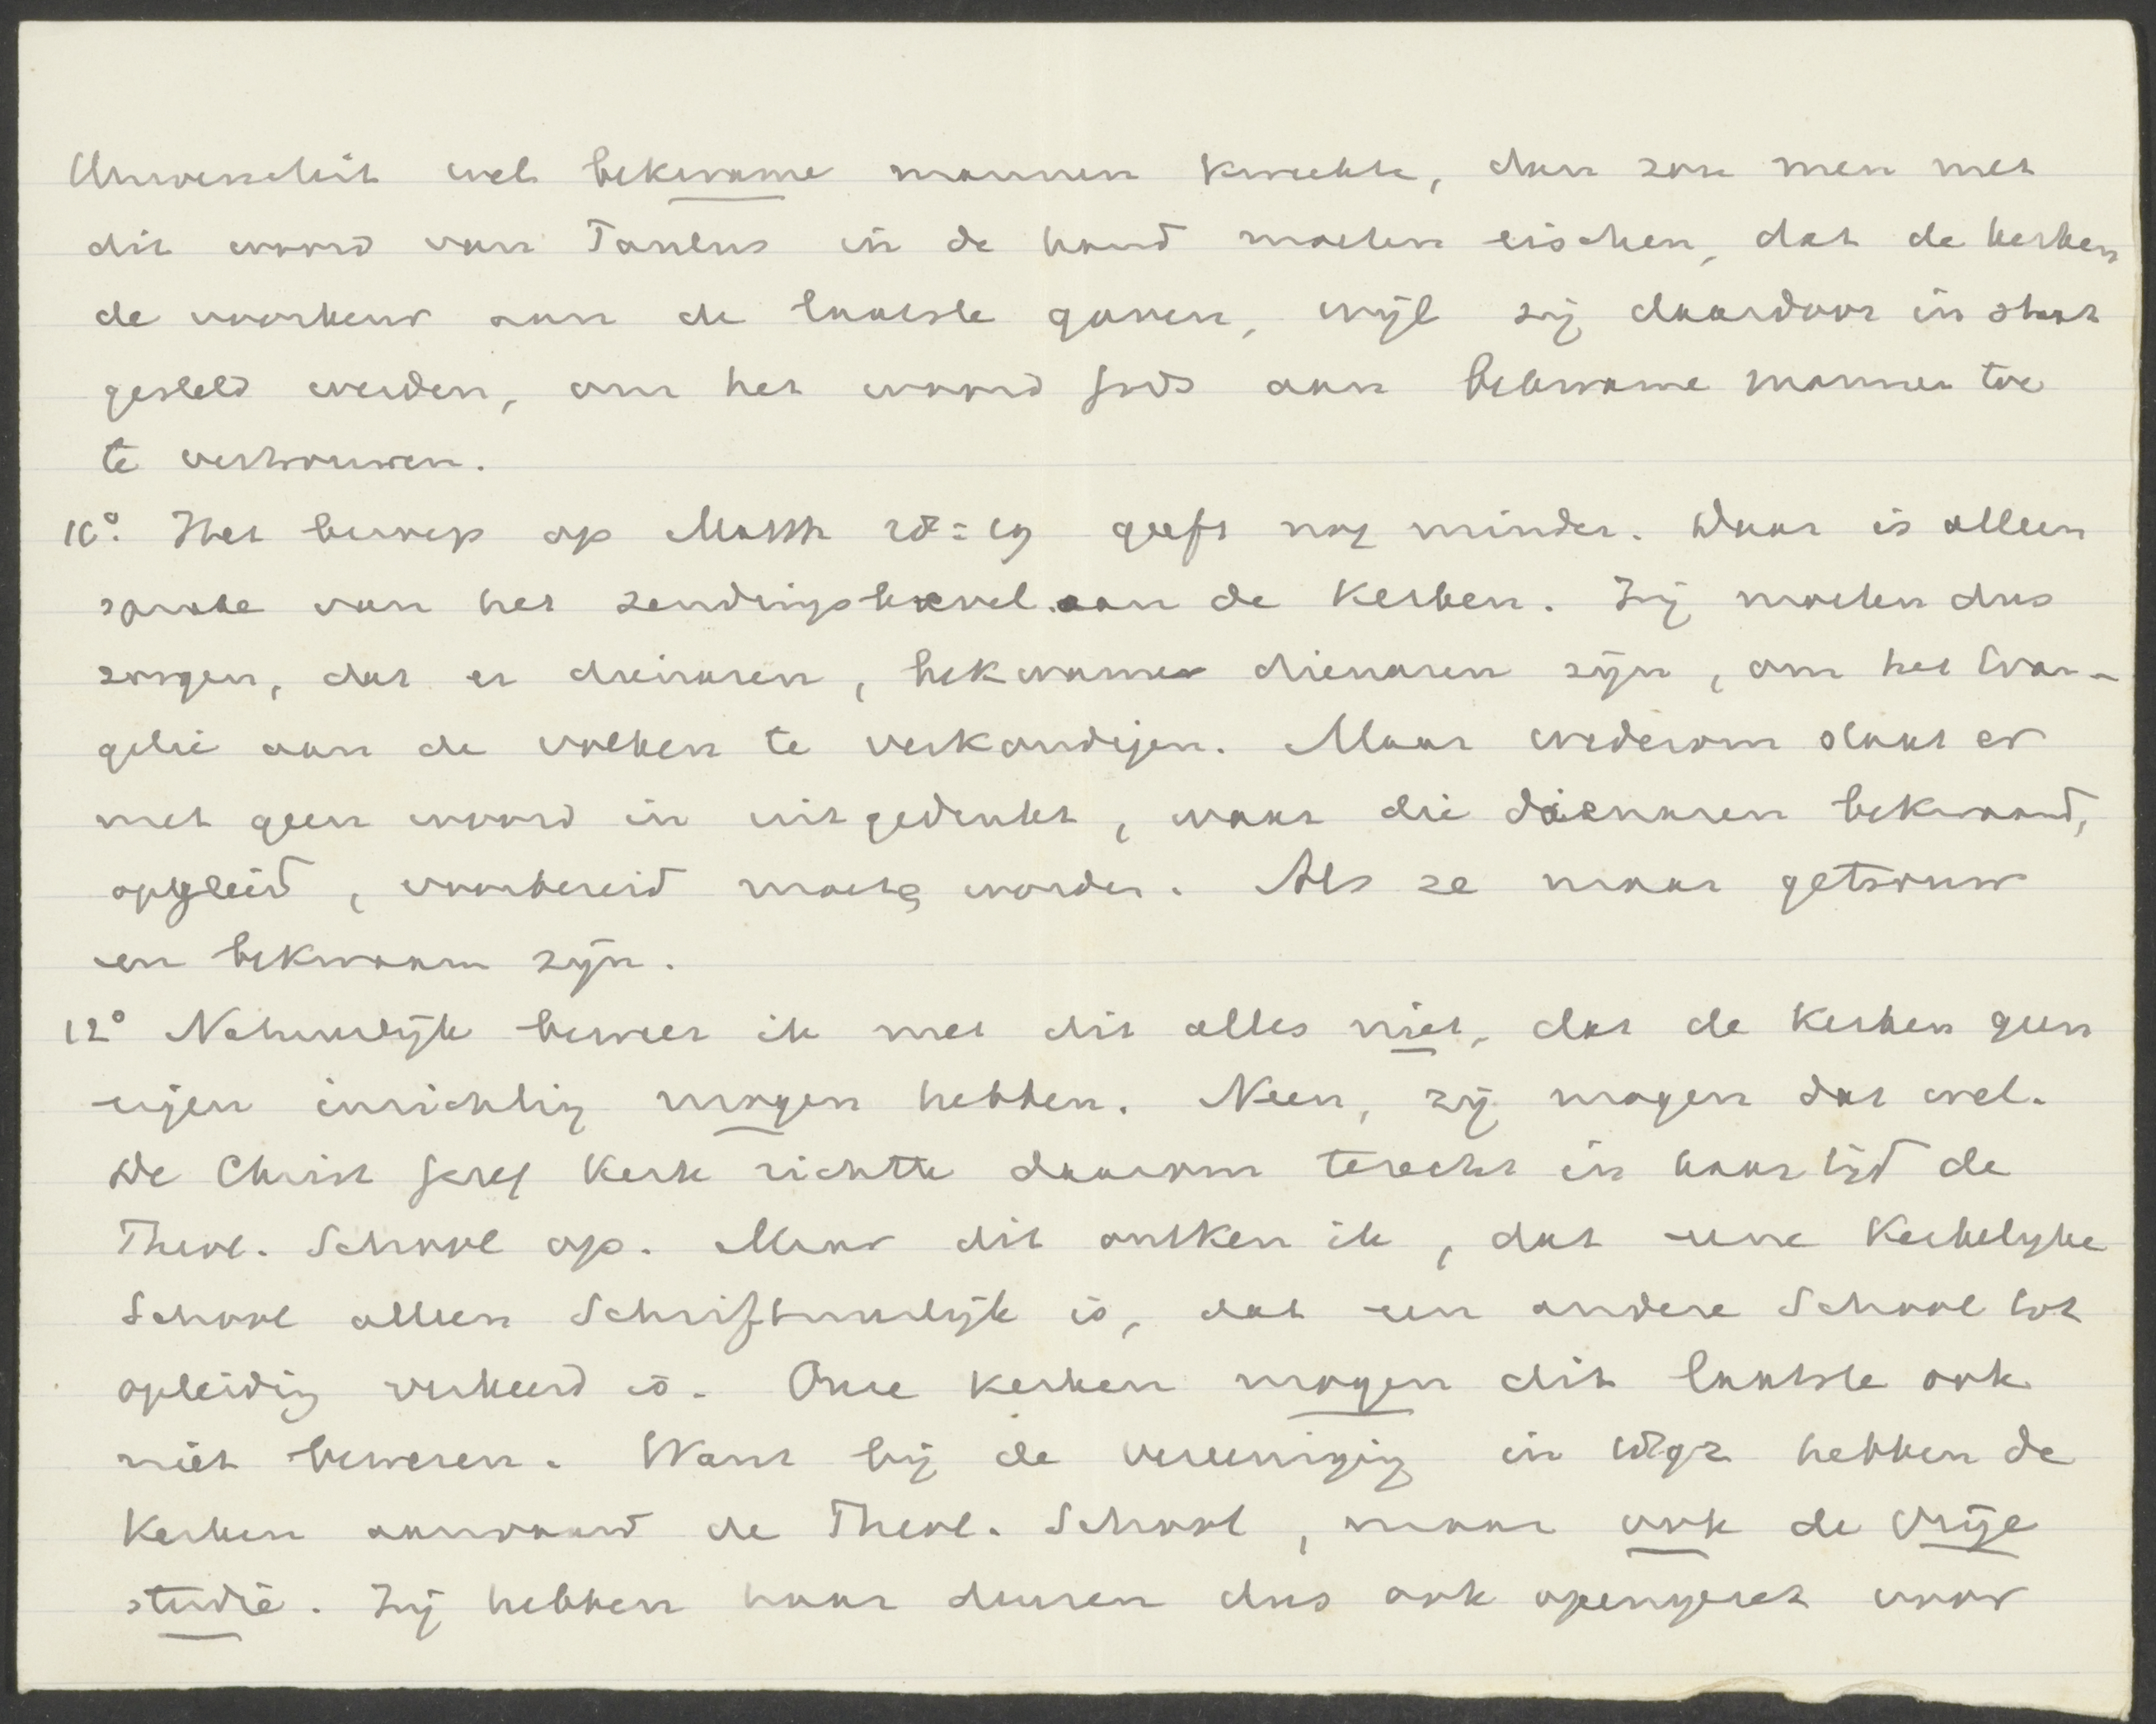 Universiteit wel bekwame mannen kweekte, dan zou men met
dit woord van Paulus in de hand moeten eischen, dat de kerken
de voorkeur aan de laatste gaven, wijl zij daardoor in staat
gesteld werden, om het woord Gods aan bekwame mannen toe
te vertrouwen.
10°. Het beroep op Matth 28:19 geeft nog minder. Daar is alleen
sprake van het zendingsbevel aan de Kerken. Zij moeten dus
zorgen, dat er dienaren, bekwame dienaren zijn, om het Evan-
gelie aan de volken te verkondigen. Maar wederom staat er
met geen woord in uitgedrukt, waar die dienaren bekwaamd,
opgeleid, voorbereid moeten worden. Als ze maar getrouw
en bekwaam zijn.
12° Natuurlijk beweer ik met dit alles niet, dat de Kerken geen
eigen inrichting mogen hebben. Neen, zij mogen dat wel.
De Christ Geref Kerk richtte daarom terecht in haar tijd de
Theol. School op. Maar dit ontken ik, dat eene Kerkelijke
School alleen Schriftuurlijk is, dat een andere School tot
opleiding verkeerd is. Onze Kerken mogen dit laatste ook
niet beweren. Want bij de vereeniging in 1892 hebben de
Kerken aanvaard de Theol. School, maar ook de Vrije
studie. Zij hebben haar deuren dus ook opengezet voor